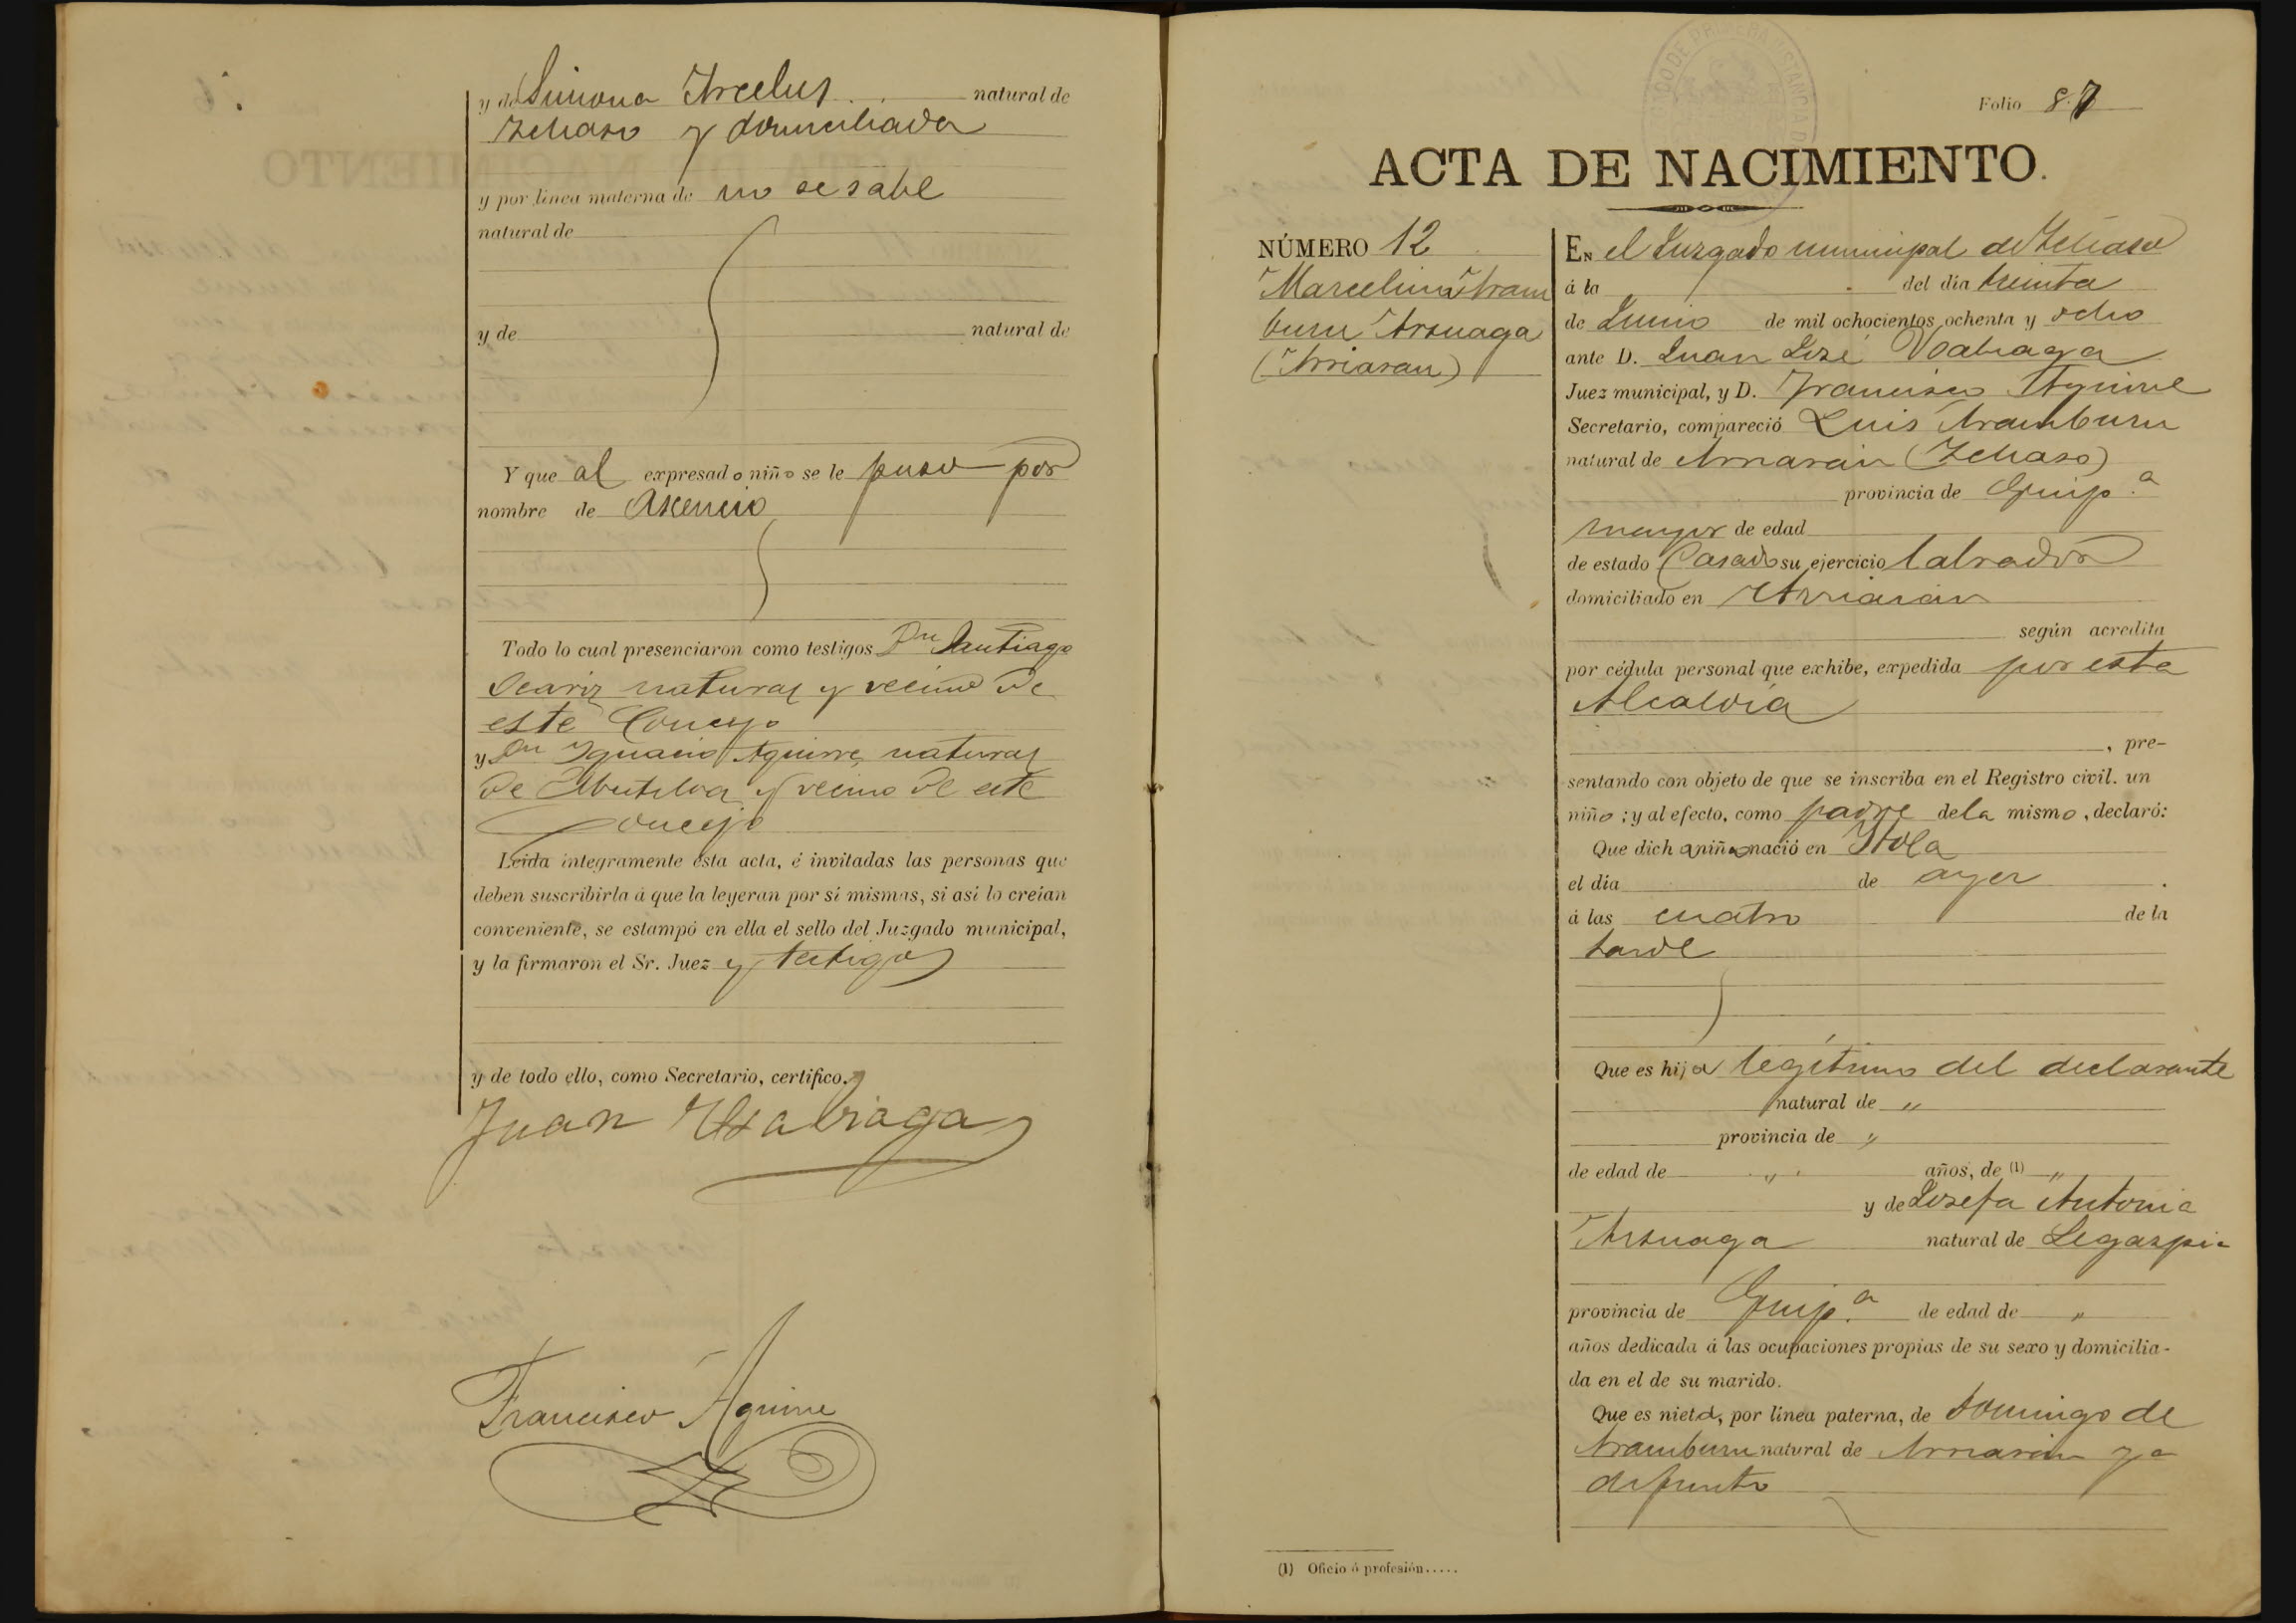 y de Simona Arcelus natural de
Ichaso y domiciliada
y por línea materna de no se sabe
natural de
y de natural de
Y que al expresado niño se le puso por
nombre de Asencio
Todo lo cual presenciaron como testigos Dn Santiago
natural y vecino de
este Concejo
y Dn Ignacio Aguirre natural
de Mutiloa y vecino de este
Concejo
Leida íntegramente esta acta, é invitadas las personas que
deben suscribirla á que la leyeran por sí mismas, si así lo creían
conveniente, se estampó en ella el sello del Juzgado municipal,
y la firmaron el Sr. Juez y testigos
y de todo ello, como Secretario, certifico.
Juan Usabiaga
Francisco Aguirre
Folio 8
ACTA DE NACIMIENTO.
NÚMERO 12
Marcelina Aram
buru Arsuaga
(Arriaran)
EN el Juzgado municipal de Ichaso
á la del día treinta
de Junio de mil ochocientos ochenta y ocho
ante D. Juan José Usabiaga
Juez municipal, y D. Francisco Aguirre
Secretario, compareció Luis Aramburu
natural de Arriaran (Ichaso)
provincia de Guip.a
mayor de edad
de estado Casado su ejercicio labrador
domiciliado en Arriaran
según acredita
por cédula personal que exhibe, expedida por esta
Alcaldia
, pre-
sentando con objeto de que se inscriba en el Registro civil. un
niño; y al efecto, como padre de la mismo, declaró:
Que dicha niña nació en Itola
el día de ayer
á las cuatro de la
tarde
Que es hija legítimo del declarante
natural de "
provincia de "
de edad de " años, de (1) "
y de Josefa Antonia
Arsuaga natural de Legazpia
provincia de Guip.a de edad de "
años dedicada á las ocupaciones propias de su sexo y domicilia-
da en el de su marido.
Que es nieta, por línea paterna, de Domingo de
Aramburu natural de Arriaran ya
difunto
(1) Oficio ó profesión.....